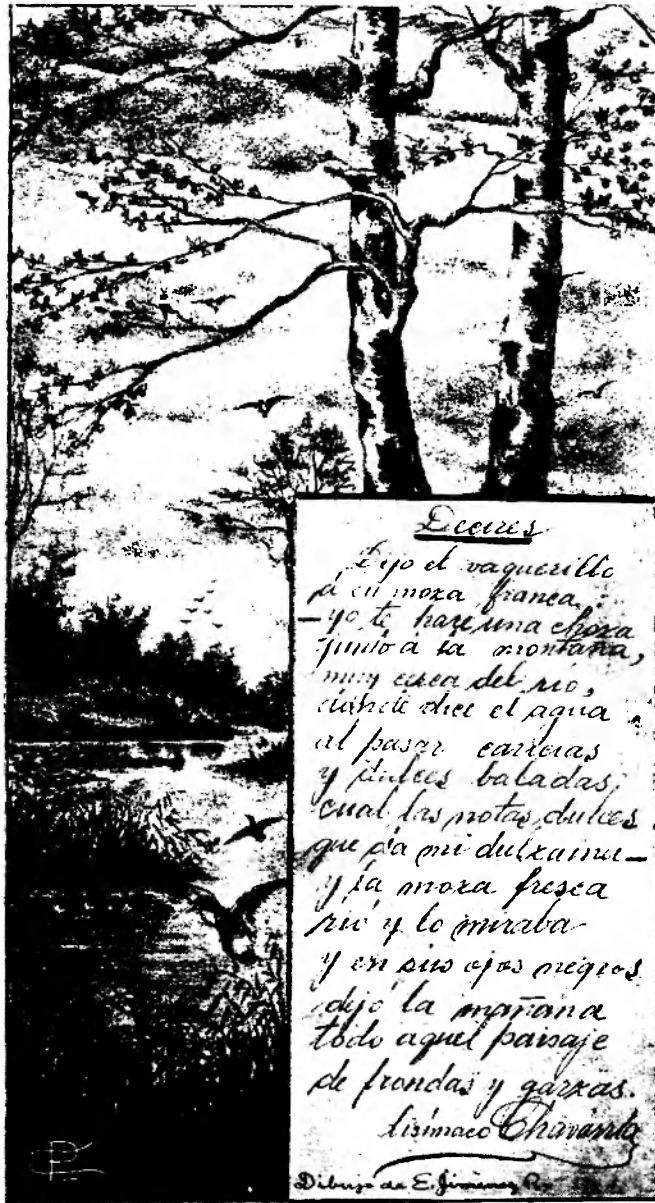 Decires
Dijo el vaquerillo
á su moza franca,
—yo te haré una choza
junto á la montaña,
muy cerca del rio,
dónde dice el agua
al pasar
y dulces baladas,
cual las notas dulces
que da mi dulzaina—
y la moza fresca
rió y lo miraba
y en sus ojos negros
dijo la mañana
todo aquel paisaje
de frondas y garzas.
Lisímaco Chavarría
Dibujo de E. Jiménez R.